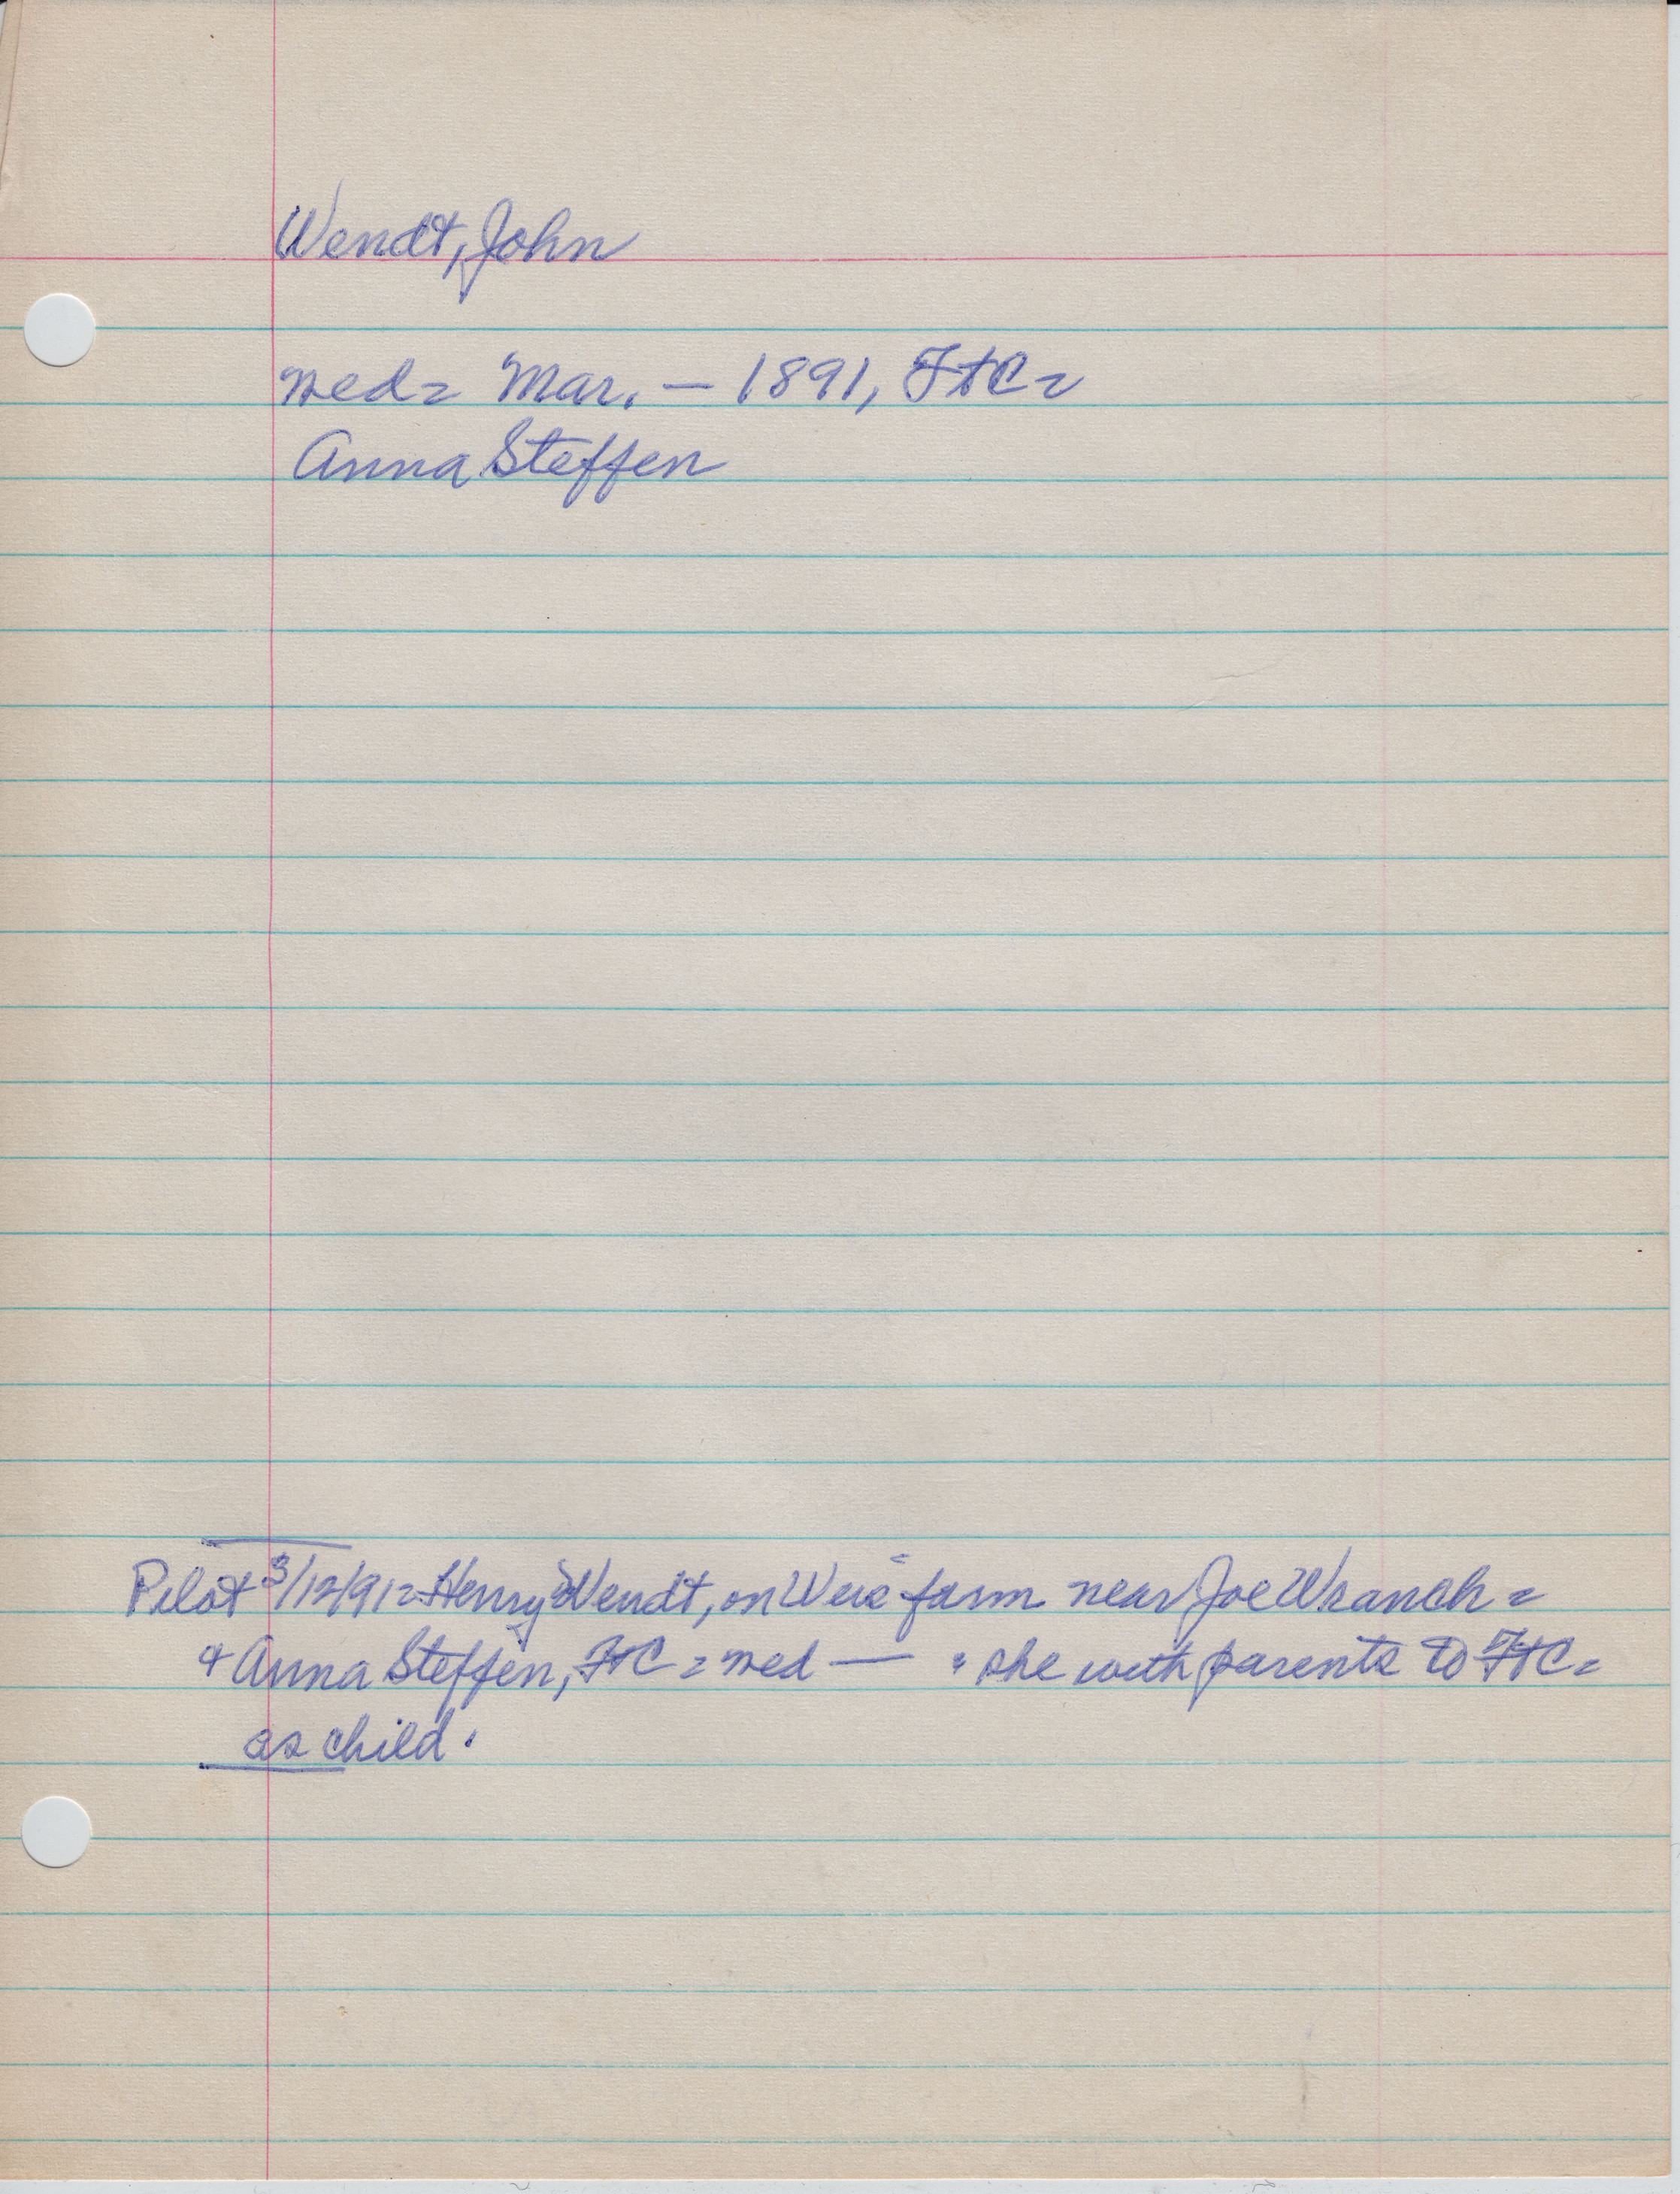 Wendt, John
wed = Mar. — 1891, FtC =
Anna Steffen
Pilot 3/12/91 = Henry Wendt, on farm near Joe Wranch =
& Anna Steffen, FtC = wed — " she with parents to FtC =
as child.